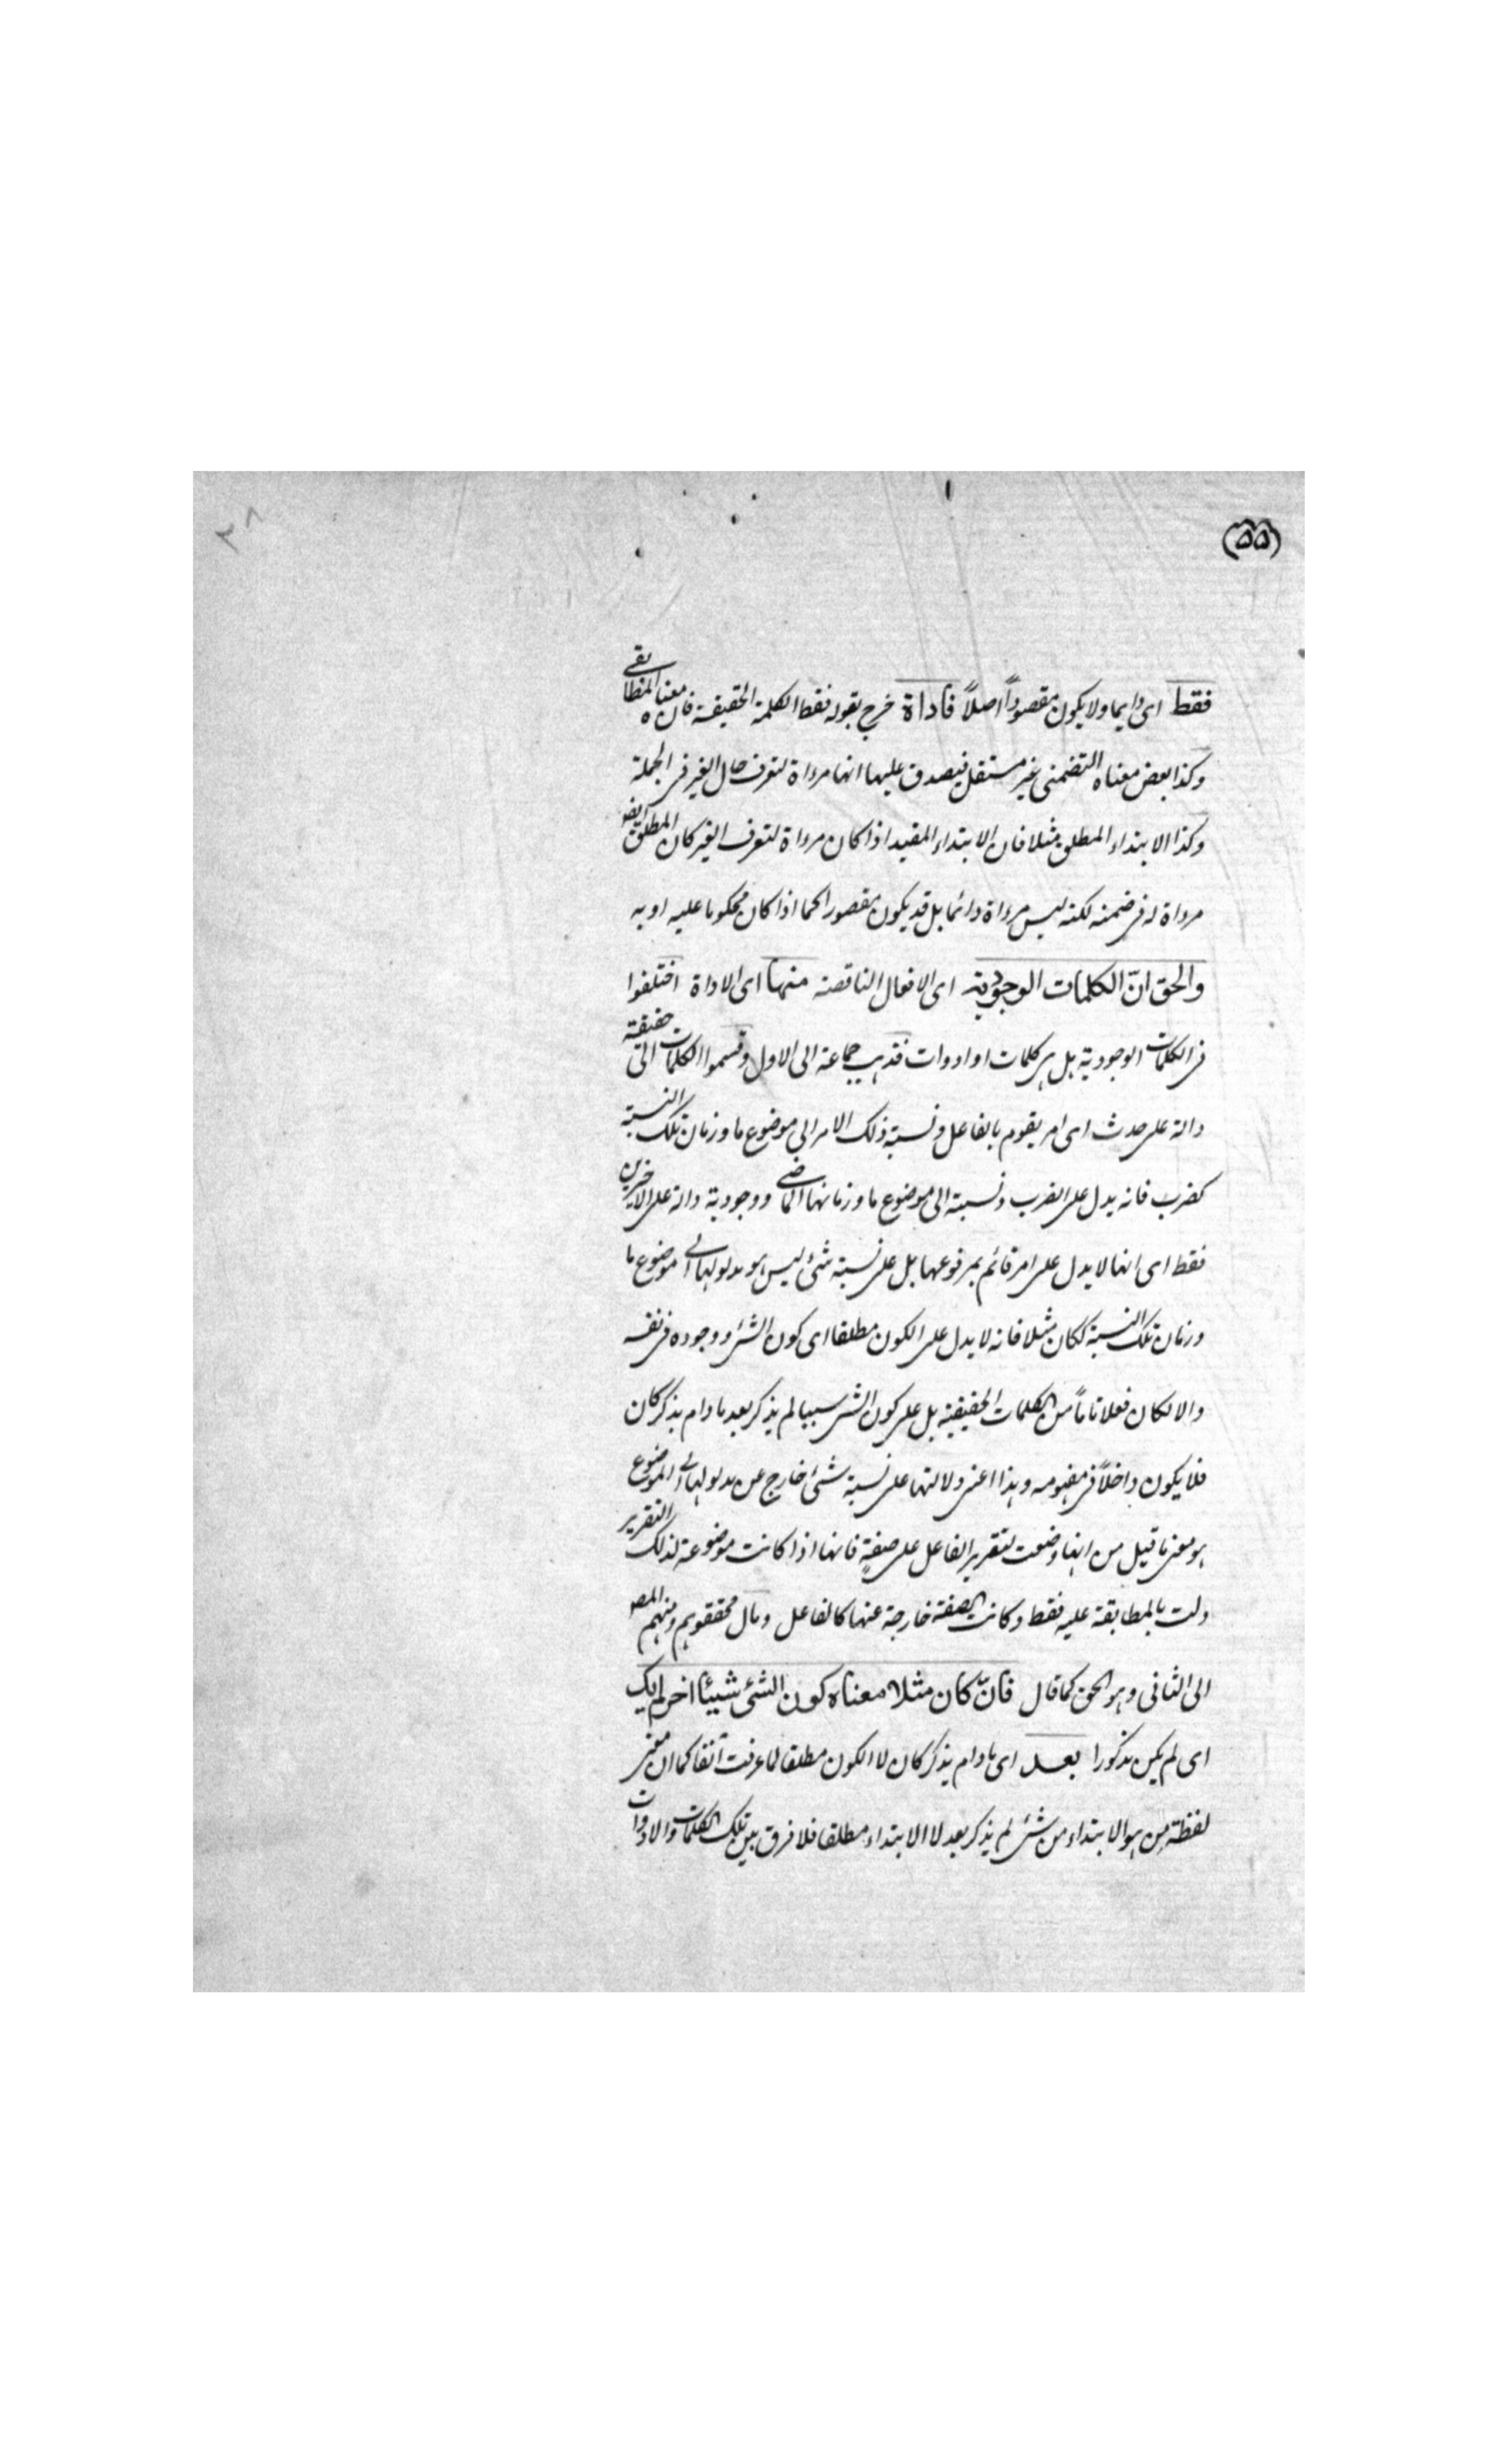 (۵۵)
۳۸
فقط اى دايما ولا يكون مقصوداً اصلاً فاداة خرج بقوله فقط الكلمة الحقيقة فان معناه المطابقى
وكذا بعض معناه التضمنى غير مستقل فيصدق عليها انها مرءاة لتعرف حال الغير فى الجملة
وكذا الابتداء المطلق مثلا فان الابتداء المقيد اذا كان مرءاة لتعرف الغير كان المطلق ايضا
مرءاة له فى ضمنه لكنه ليس مرءاة دائما بل قد يكون مقصودا كما اذا كان محكوما عليه او به
والحق انّ الكلمات الوجودية اى الافعال الناقصة منها اى الاداة اختلفوا
فى الكلمات الوجودية هل هى كلمات او ادوات فذهب جماعة الى الاول وقسموا الكلمات الى حقيقة
دالة على حدث اى امر يقوم بالفاعل ونسبة ذلك الامر الى موضوع ما وزمان تلك النسبة
كضرب فانه يدل على الضرب ونسبته الى موضوع ما وزمانها الماضى ووجودية دالة على الاخيرين
فقط اى انها لا يدل على امر قائم بمرفوعها بل على نسبة شئ ليس هو مدلولها الى موضوع ما
وزمان تلك النسبة ككان مثلا فانه لا يدل على الكون مطلقا اى كون الشئ ووجوده فى نفسه
والا لكان فعلا تاماً من الكلمات الحقيقية بل على كون الشئ شيئا لم يذكر بعد ما دام يذكر كان
فلا يكون داخلاً فى مفهومه وهذا اعنى دلالتها على نسبة شئ خارج عن مدلولها الى الموضوع
هو معنى ما قيل من انها وضعت لتقرير الفاعل على صفةٍ فانها اذا كانت موضوعة لذلك التقرير
دلت بالمطابقة عليه فقط وكانت الصفة خارجة عنها كالفاعل ومال محققوهم ومنهم المص
الى الثانى وهو الحق كما قال فانّ كان مثلا معناه كون الشئ شيئا اخر لم يك
اى لم يكن مذكورا بعد اى ما دام يذكر كان لا الكون مطلقا لما عرفت آنفا كما ان معنى
لفظة من هو الابتداء من شئ لم يذكر بعد لا الابتداء مطلقا فلا فرق بين تلك الكلمات والادوات